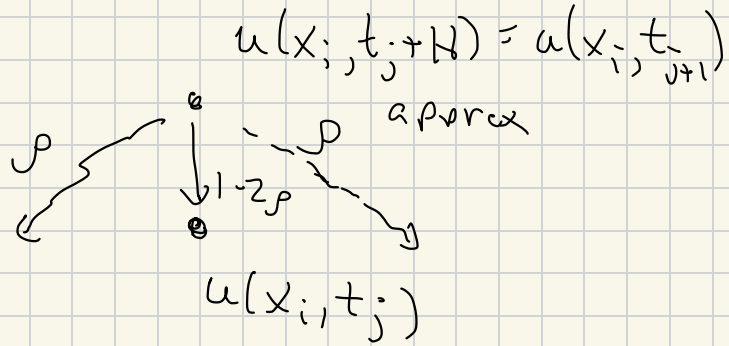 u(x_i, t_j + H) = u(x_i, t_{j+1})
approx
ρ ρ
1-2ρ
u(x_i, t_j)